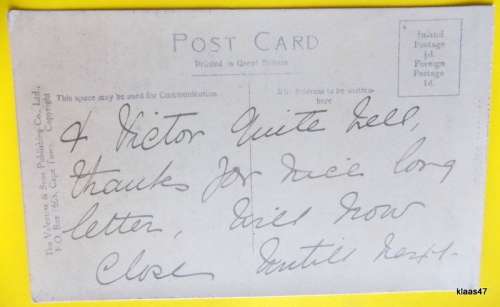 POST CARD
Printed in Great Britain
Inland
Postage
½d.
Foreign
Postage
1d.
This space may be used for Communication
The Address to be written
here
The Valentine & Sons Publishing Co., Ltd.,
P.O. Box 1685, Cape Town. Copyright
& Victor Quite well,
thanks for nice long
letter, Will Now
Close Untill Next.
klaas47